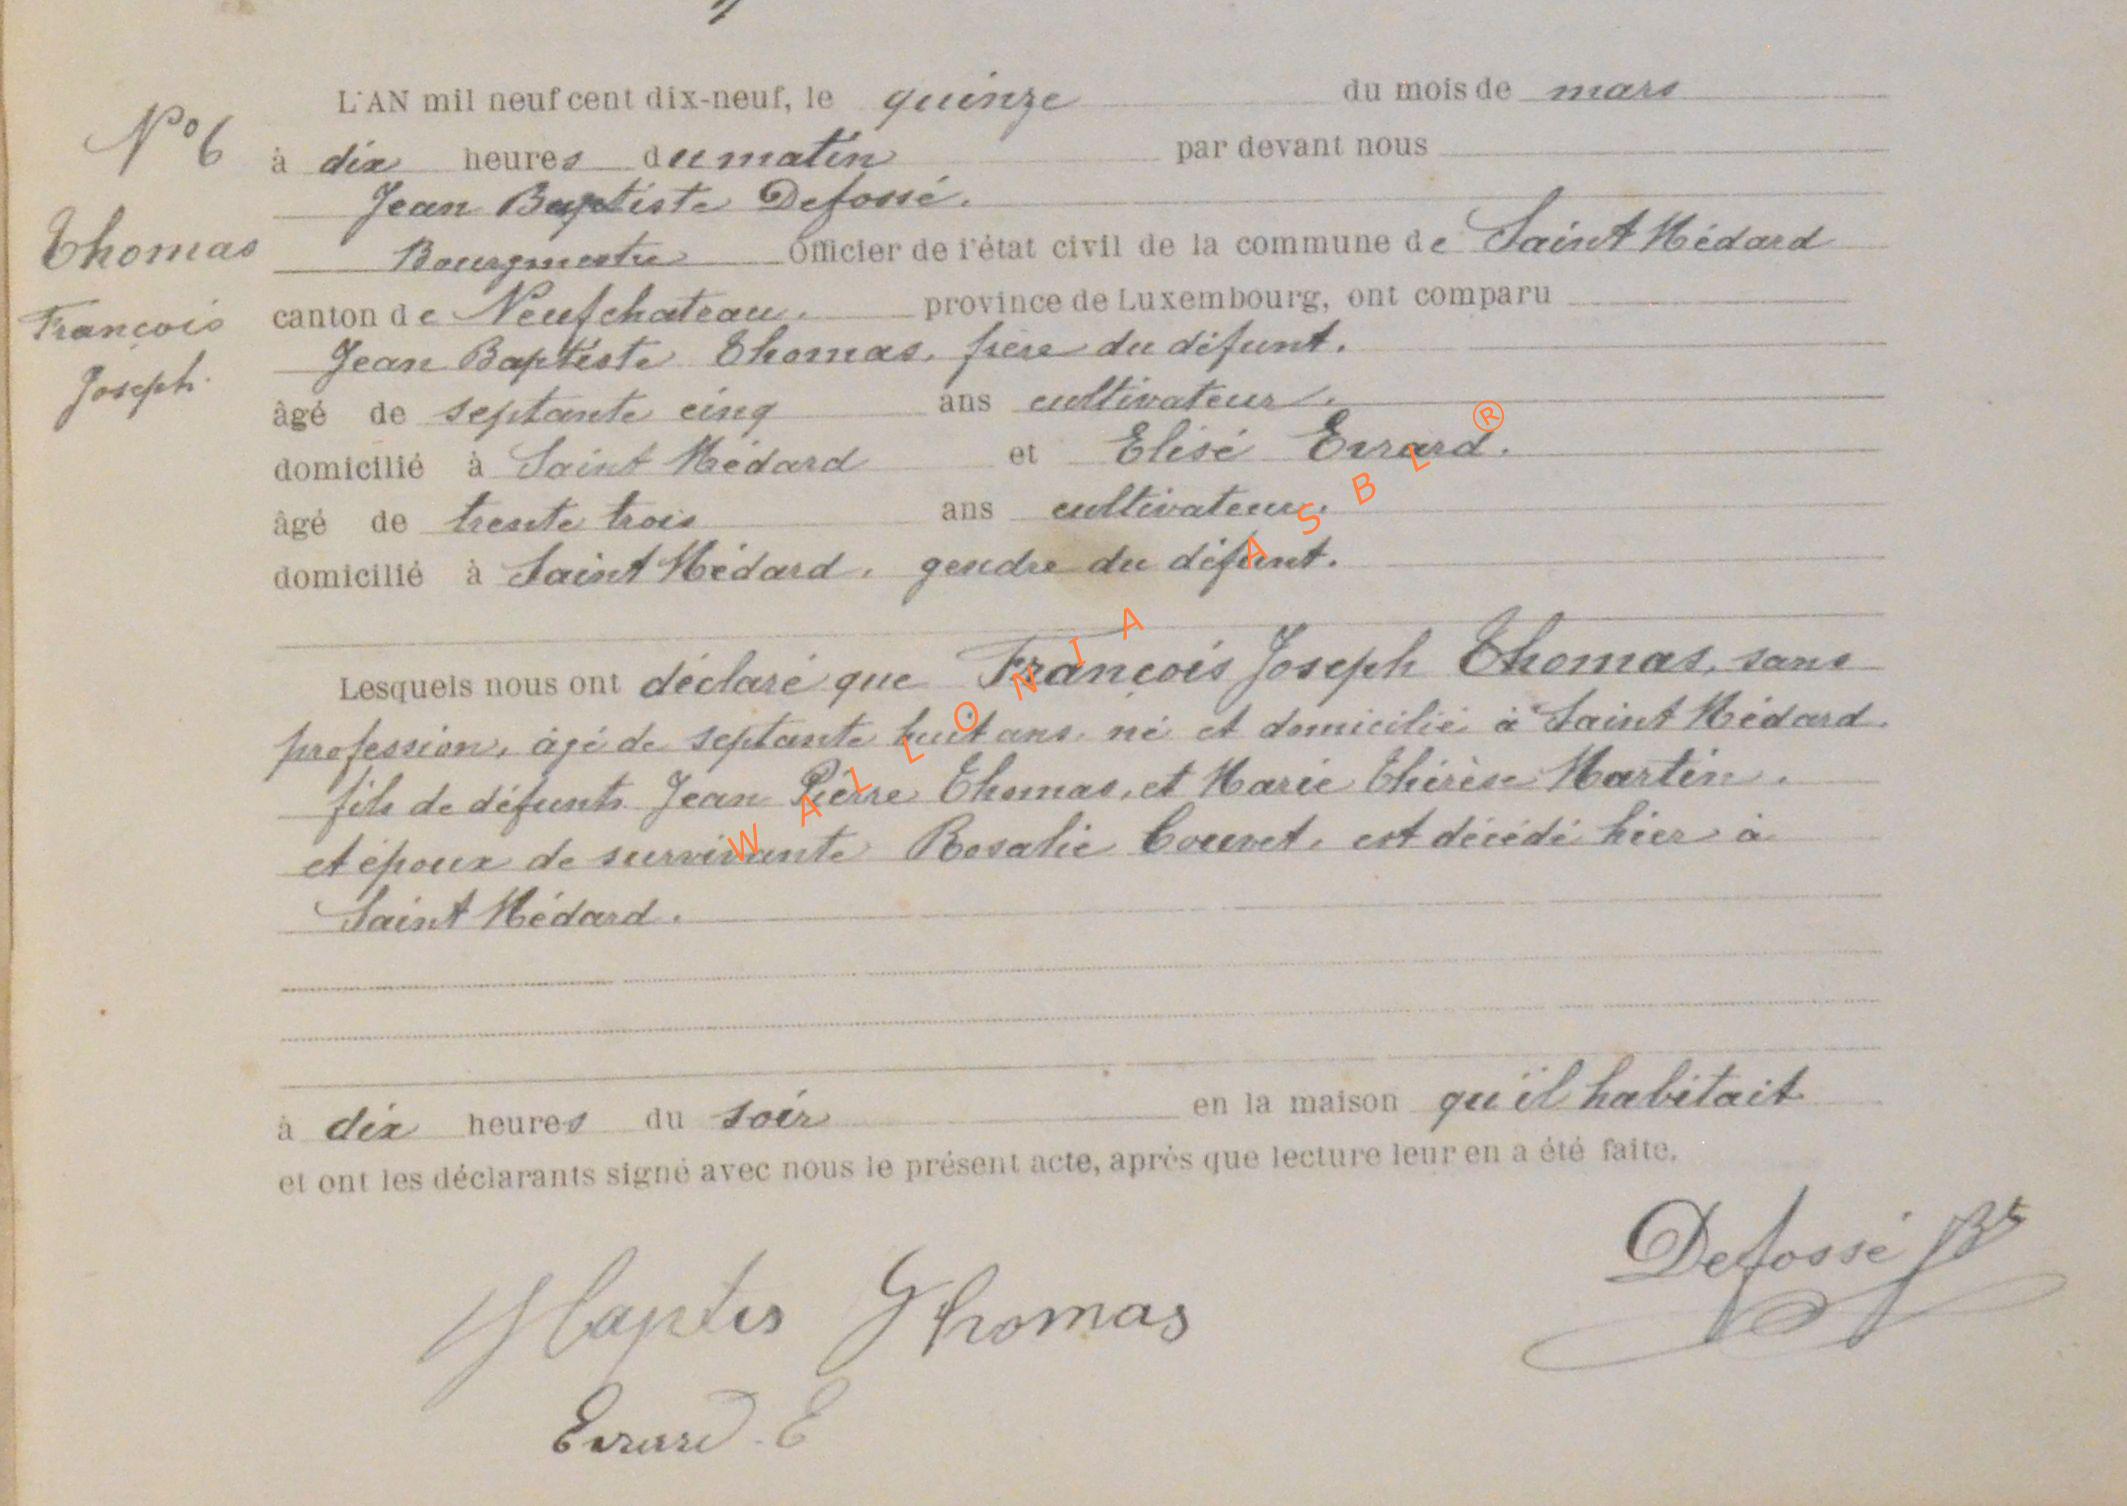 L'AN mil neuf cent dix-neuf, le quinze du mois de mars
N° 6
à dix heures du matin par devant nous
Jean Baptiste Defossé.
Thomas
Bourgmestre Officier de l'état civil de la commune de Saint Médard
François
canton de Neufchateau. province de Luxembourg, ont comparu
Joseph
Jean Baptiste Thomas, frère du défunt.
âgé de septante cinq ans cultivateur.
domicilié à Saint Médard et Elisé Evrard.
âgé de trente trois ans cultivateur.
domicilié à Saint Médard, gendre du défunt.
Lesquels nous ont déclaré que François Joseph Thomas, sans
profession, âgé de septante huit ans, né et domicilié à Saint Médard.
fils de défunts Jean Pierre Thomas, et Marie Thérèse Martin.
et époux de survivante Rosalie Couvet, est décédé hier à
Saint Médard.
à dix heures du soir en la maison qu'il habitait
et ont les déclarants signé avec nous le présent acte, après que lecture leur en a été faite.
Defossé
Thomas
Evrard. E
WALLONIA ASBL ®